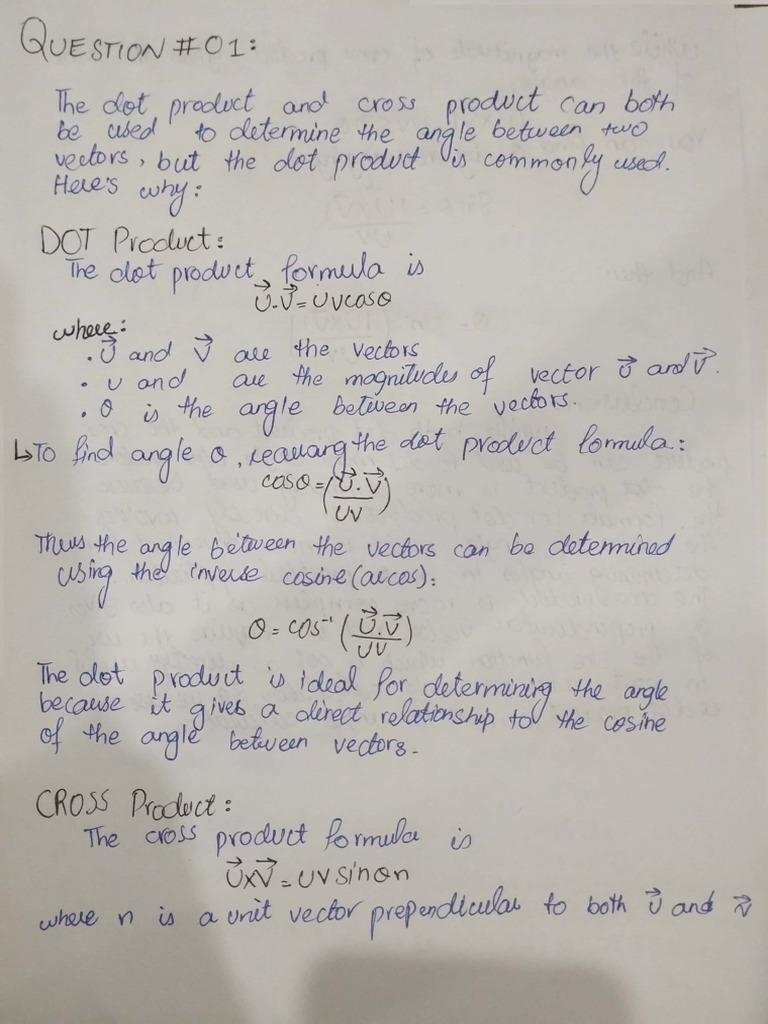 QUESTION #01:
The dot product and cross product can both
be used to determine the angle between two
vectors, but the dot product is commonly used.
Here's why:
DOT Product:
The dot product formula is
U⃗.V⃗ = UVcosθ
where:
. U⃗ and V⃗ are the vectors
. U and are the magnitudes of vector U⃗ and V⃗.
. θ is the angle between the vectors.
↳To find angle θ, rearrang the dot product formula:
cosθ = (U⃗.V⃗/UV)
Thus the angle between the vectors can be determined
using the inverse cosine (arcos):
θ = cos⁻¹ (U⃗.V⃗/UV)
The dot product is ideal for determining the angle
because it gives a direct relationship to the cosine
of the angle between vectors.
CROSS Product:
The cross product formula is
U⃗xV⃗ = UVsinθn
where n is a unit vector prependicular to both U⃗ and V⃗